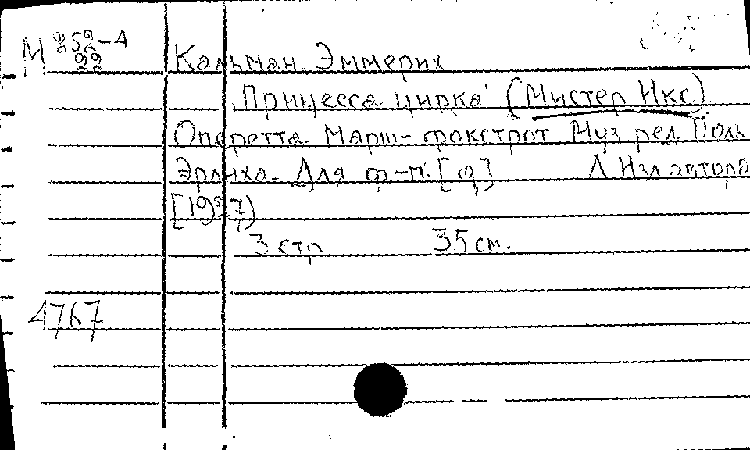 М 252-4
22
Кальман Эммерих
Принцесса цирка (Мистер Икс)
Оперетта. Марш-фокстрот Муз. ред. Поль
Эрлиха. Для ф-п. [ц] Л Изд автора
3 стр 35 см.
4767